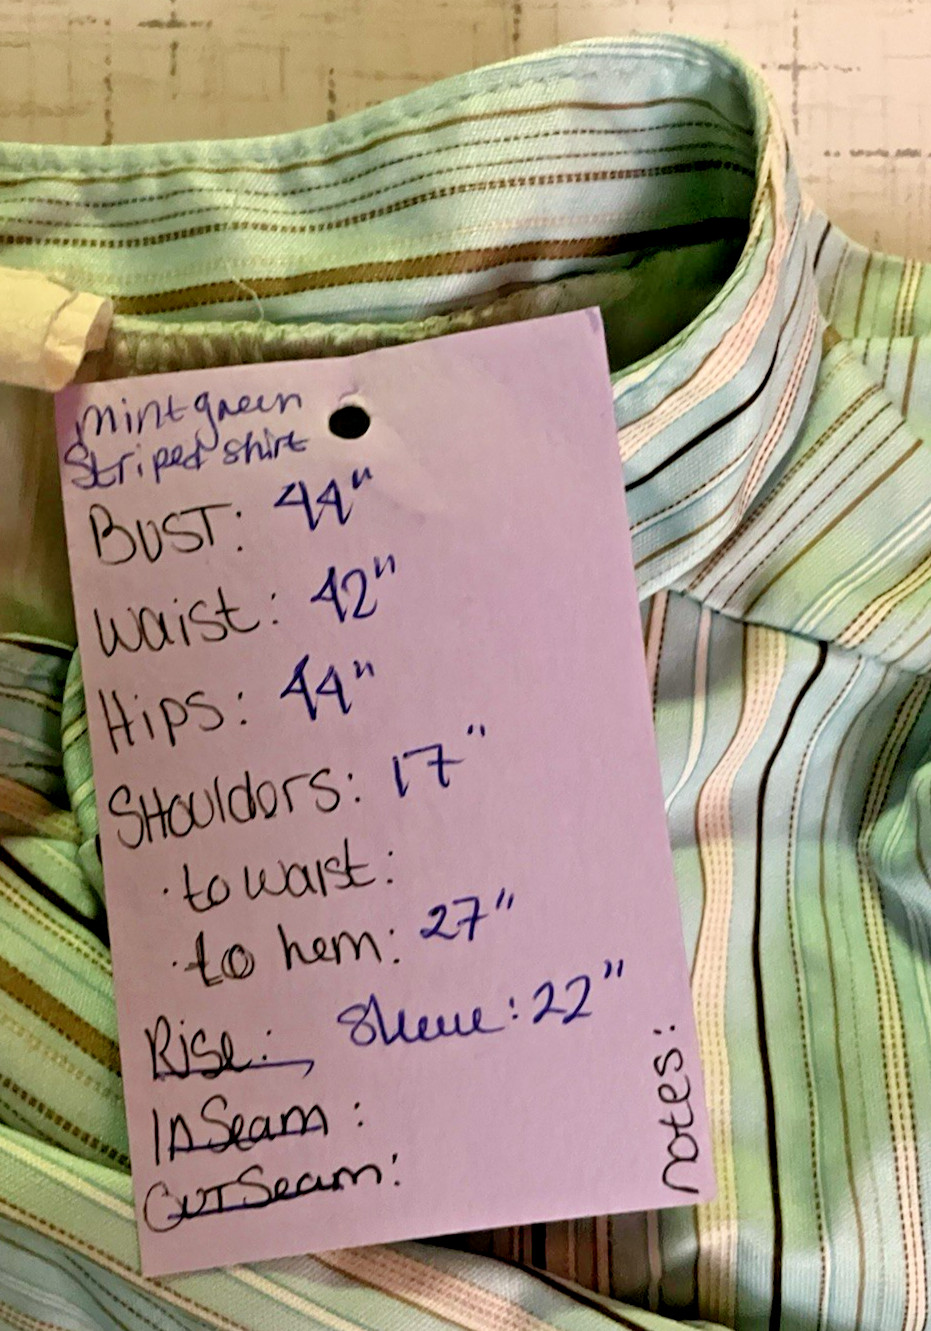 mint green
striped shirt
BUST: 44"
Waist: 42"
Hips: 44"
SHoulders: 17"
· to waist:
· to hem: 27"
Rise: Sleeve: 22"
InSeam:
OutSeam:
notes: